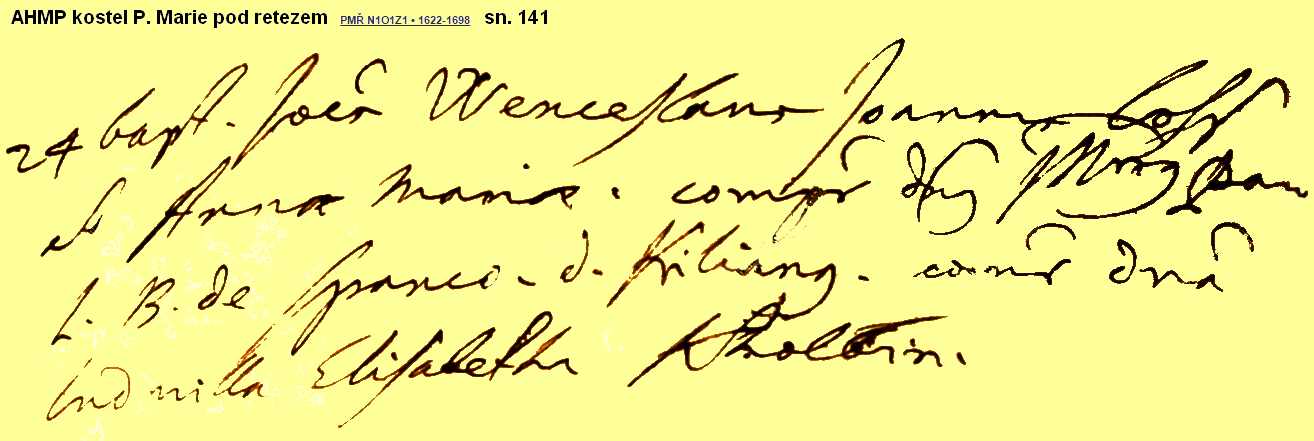 AHMP kostel P. Marie pod retezem PMŘ N1O1Z1 • 1622-1698 sn. 141
24 bapt. Wenceslaus Joannis
et Anna Maria. comp̃r dñg
L. B. de Spanco. d. Kiliang. com̃r dnã
Ludmilla Elisabetha